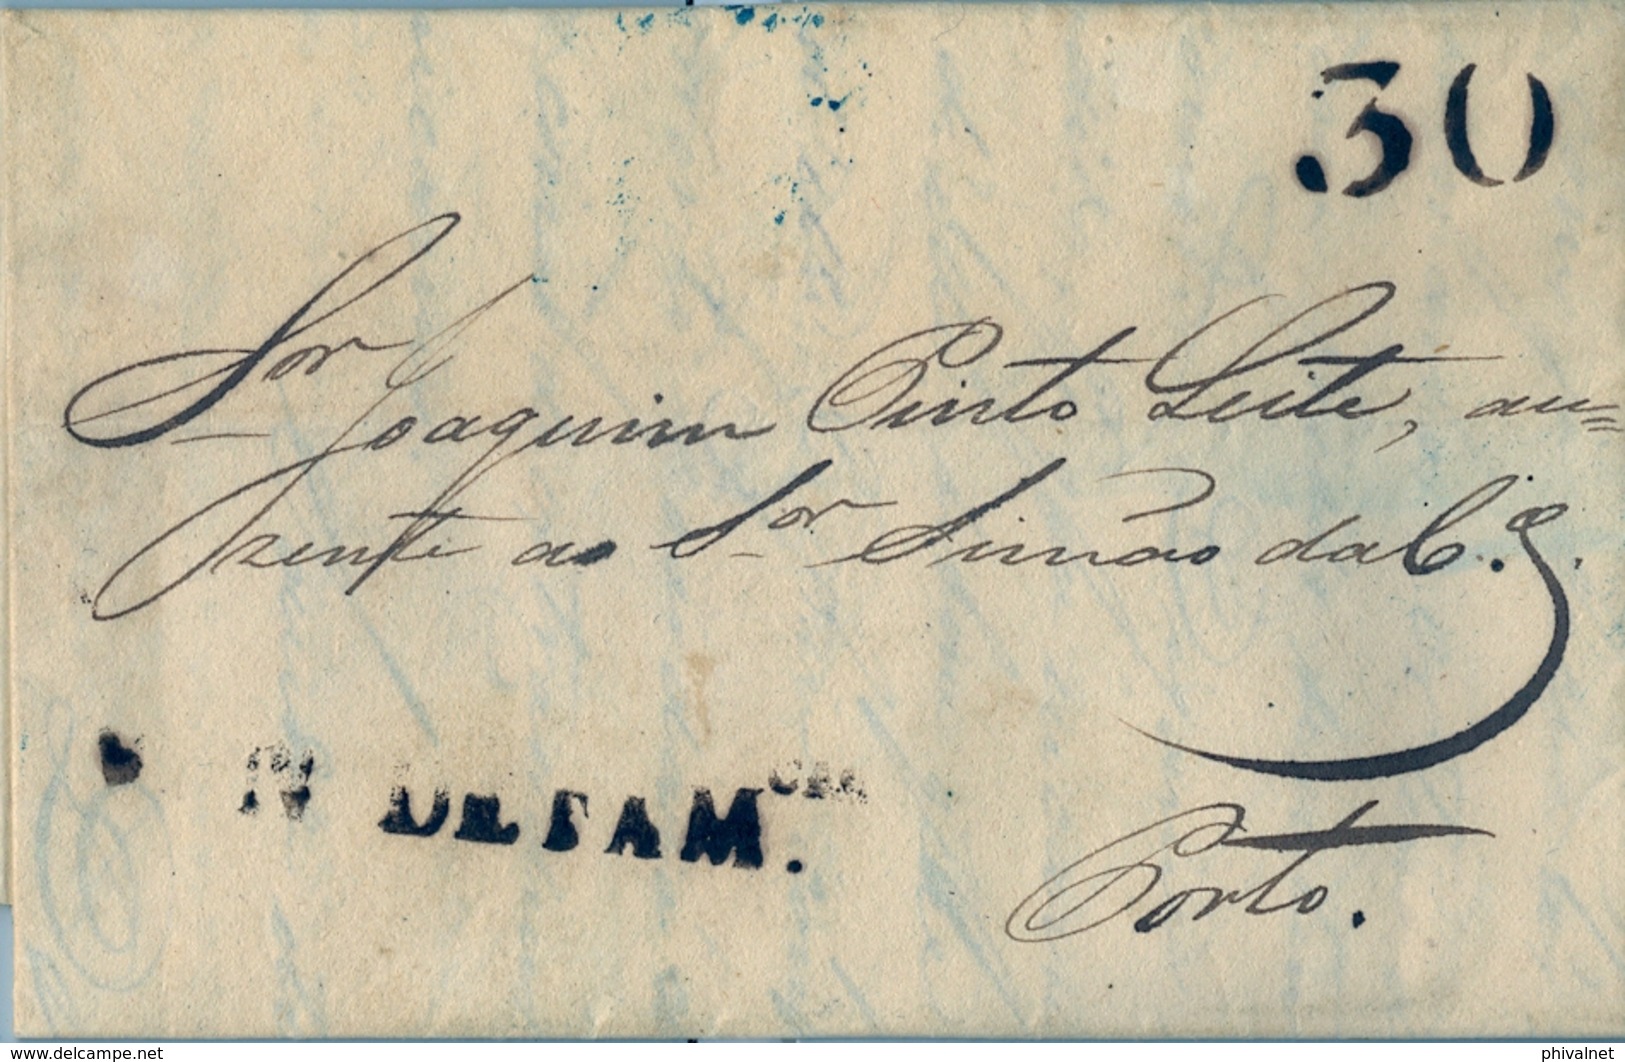 30
Snr Joaquim Pinto Leite, au=
zente ao Snr Simão da C. S.
N DE FAM.cão
Porto.
www.delcampe.net
phivalnet